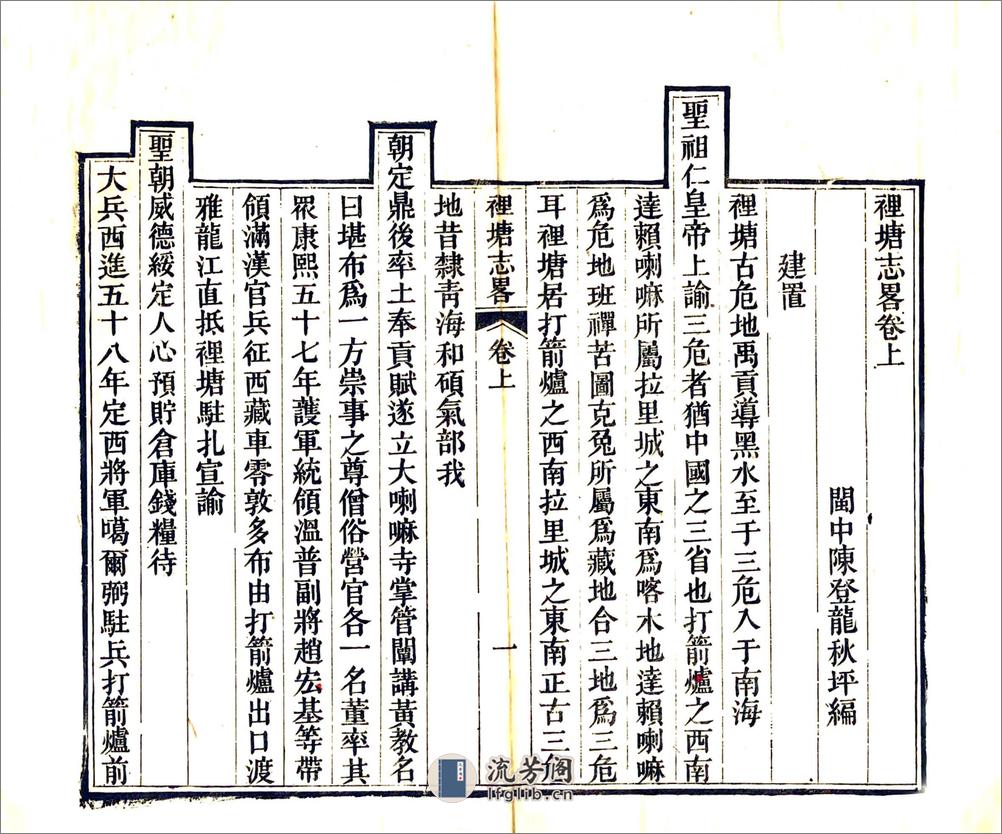 裡塘志畧卷上
閩中陳登龍秋坪編
建置
裡塘古危地禹貢導黑水至于三危入于南海
聖祖仁皇帝上諭三危者猶中國之三省也打箭爐之西南
達賴喇嘛所屬拉里城之東南爲喀木地達賴喇嘛
爲危地班禪苦圖克兔所屬爲藏地合三地爲三危
耳裡塘居打箭爐之西南拉里城之東南正古三危
裡塘志畧
卷上
一
地昔隸靑海和碩氣部我
朝定鼎後率土奉貢賦遂立大喇嘛寺掌管闡講黃教名
曰堪布爲一方崇事之尊僧俗營官各一名董率其
眾康熙五十七年護軍統領溫普副將趙宏基等帶
領滿漢官兵征西藏車零敦多布由打箭爐出口渡
雅龍江直抵裡塘駐扎宣諭
聖朝威德綏定人心預貯倉庫錢糧待
大兵西進五十八年定西將軍噶爾弼駐兵打箭爐前
流芳阁
lfglib.cn